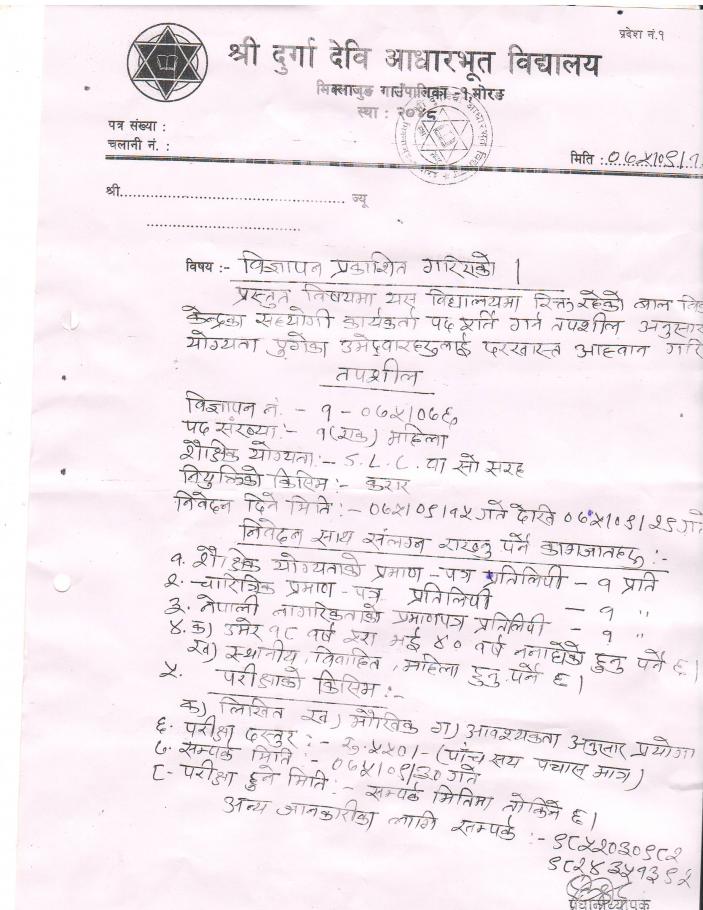 प्रदेश नं.१
श्री दुर्गा देवि आधारभूत विद्यालय
मिक्लाजुङ गाउँपालिका -१,मोरङ
स्था : २०४८
पत्र संख्या :
चलानी नं. :
मिति :. ०७५।०९।१
श्री............................................. ज्यू
...............................
विषय :- विज्ञापन प्रकाशित गरिएको ।
प्रस्तुत विषयमा यस विद्यालयमा रिक्त रहेको बाल वि
केन्द्रका सहयोगी कार्यकर्ता पद पूर्ति गर्न तपशील अनुसार
योग्यता पुगेका उमेद्वारहरुलाई दरखास्त आह्वान गरि
तपशील
विज्ञापन नं. - १ - ०७५।०७६
पद संख्या:- १(एक) महिला
शैक्षिक योग्यता:- S.L.C. वा सो सरह
नियुक्तिको किसिम :- करार
निवेदन दिने मिति :- ०७५।०९।१५ गते देखि ०७५।०९।२९ गते
निवेदन साथ संलग्न राख्नु पर्ने कागजातहरु :-
१. शैक्षिक योग्यताको प्रमाण-पत्र प्रतिलिपी - १ प्रति
२. चारित्रिक प्रमाण-पत्र प्रतिलिपी - १ "
३. नेपाली नागरिकताको प्रमाणपत्र प्रतिलिपी - १ "
४. क) उमेर १८ वर्ष पूरा भई ४० वर्ष ननाघेको हुनु पर्ने छ।
ख) स्थानीय, विवाहित, महिला हुनु पर्ने छ।
५. परीक्षाको किसिम :-
क) लिखित ख) मौखिक ग) आवश्यकता अनुसार प्रयोगा
६. परीक्षा दस्तुर :- रु. ५५०।- (पाँच सय पचास मात्र)
७. सम्पर्क मिति :- ०७५।०९।३० गते
८- परीक्षा हुने मिति :- सम्पर्क मितिमा तोकिने छ।
अन्य जानकारीका लागि सम्पर्क :- ९८५२०३०९८२
९८२४३५१३९२
प्रधानाध्यापक